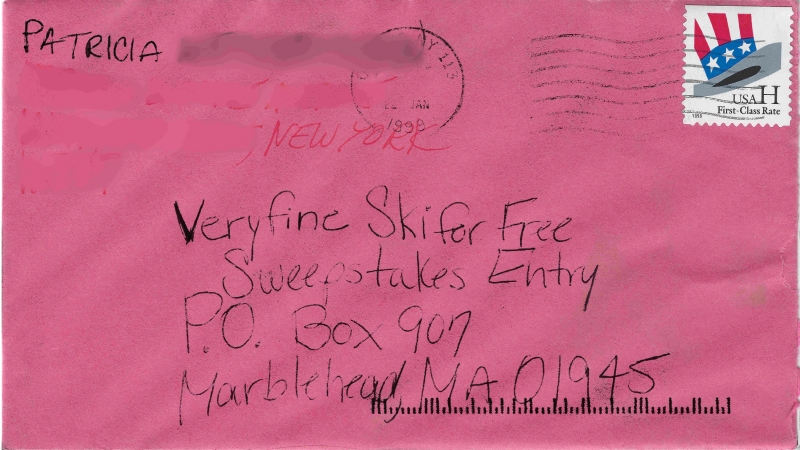 PATRICIA
Y 113
JAN
, NEW YORK
USA H
First-Class Rate
1998
Veryfine Ski for Free
Sweepstakes Entry
P.O. Box 907
Marblehead, MA 01945